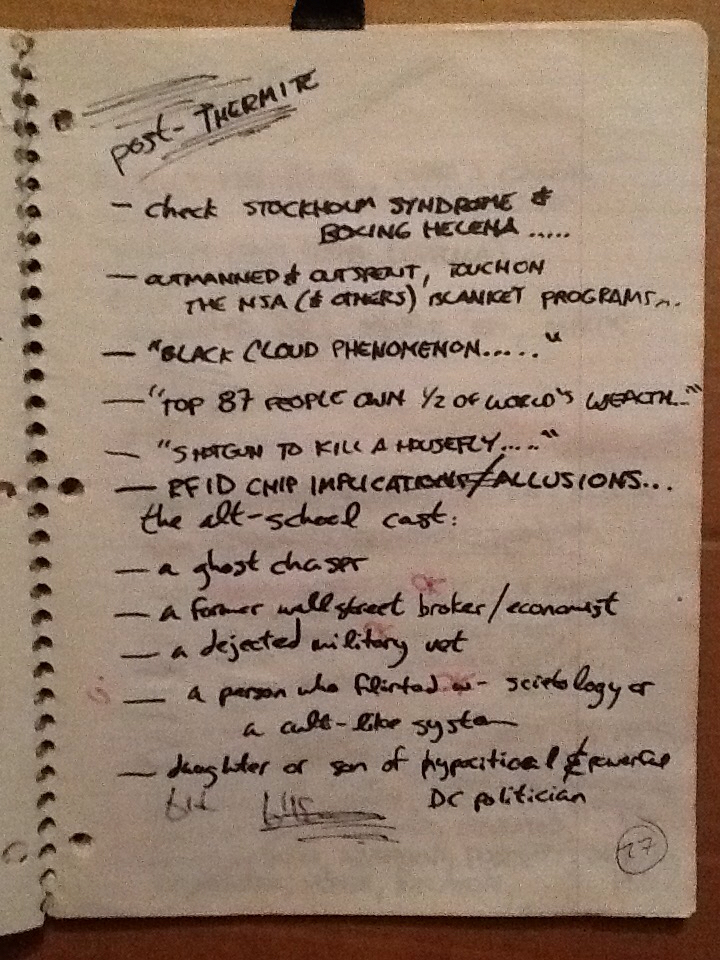 post-THERMITE
- check STOCKHOLM SYNDROME &
BOXING HELENA .....
- OUTMANNED & OUTSPENT, TOUCH ON
THE NSA (& OTHERS) BLANKET PROGRAMS...
- "BLACK CLOUD PHENOMENON....."
- "TOP 87 PEOPLE OWN 1/2 OF WORLD'S WEALTH..."
- "SHOTGUN TO KILL A HOUSEFLY....."
- RFID CHIP IMPLICATIONS/ALLUSIONS...
the alt-school cast:
- a ghost chaser
- a former wall street broker/economist
- a dejected military vet
- a person who flirted w- scietology or
a cult-like system
- daughter or son of hypocitical & powerful
DC politician
27